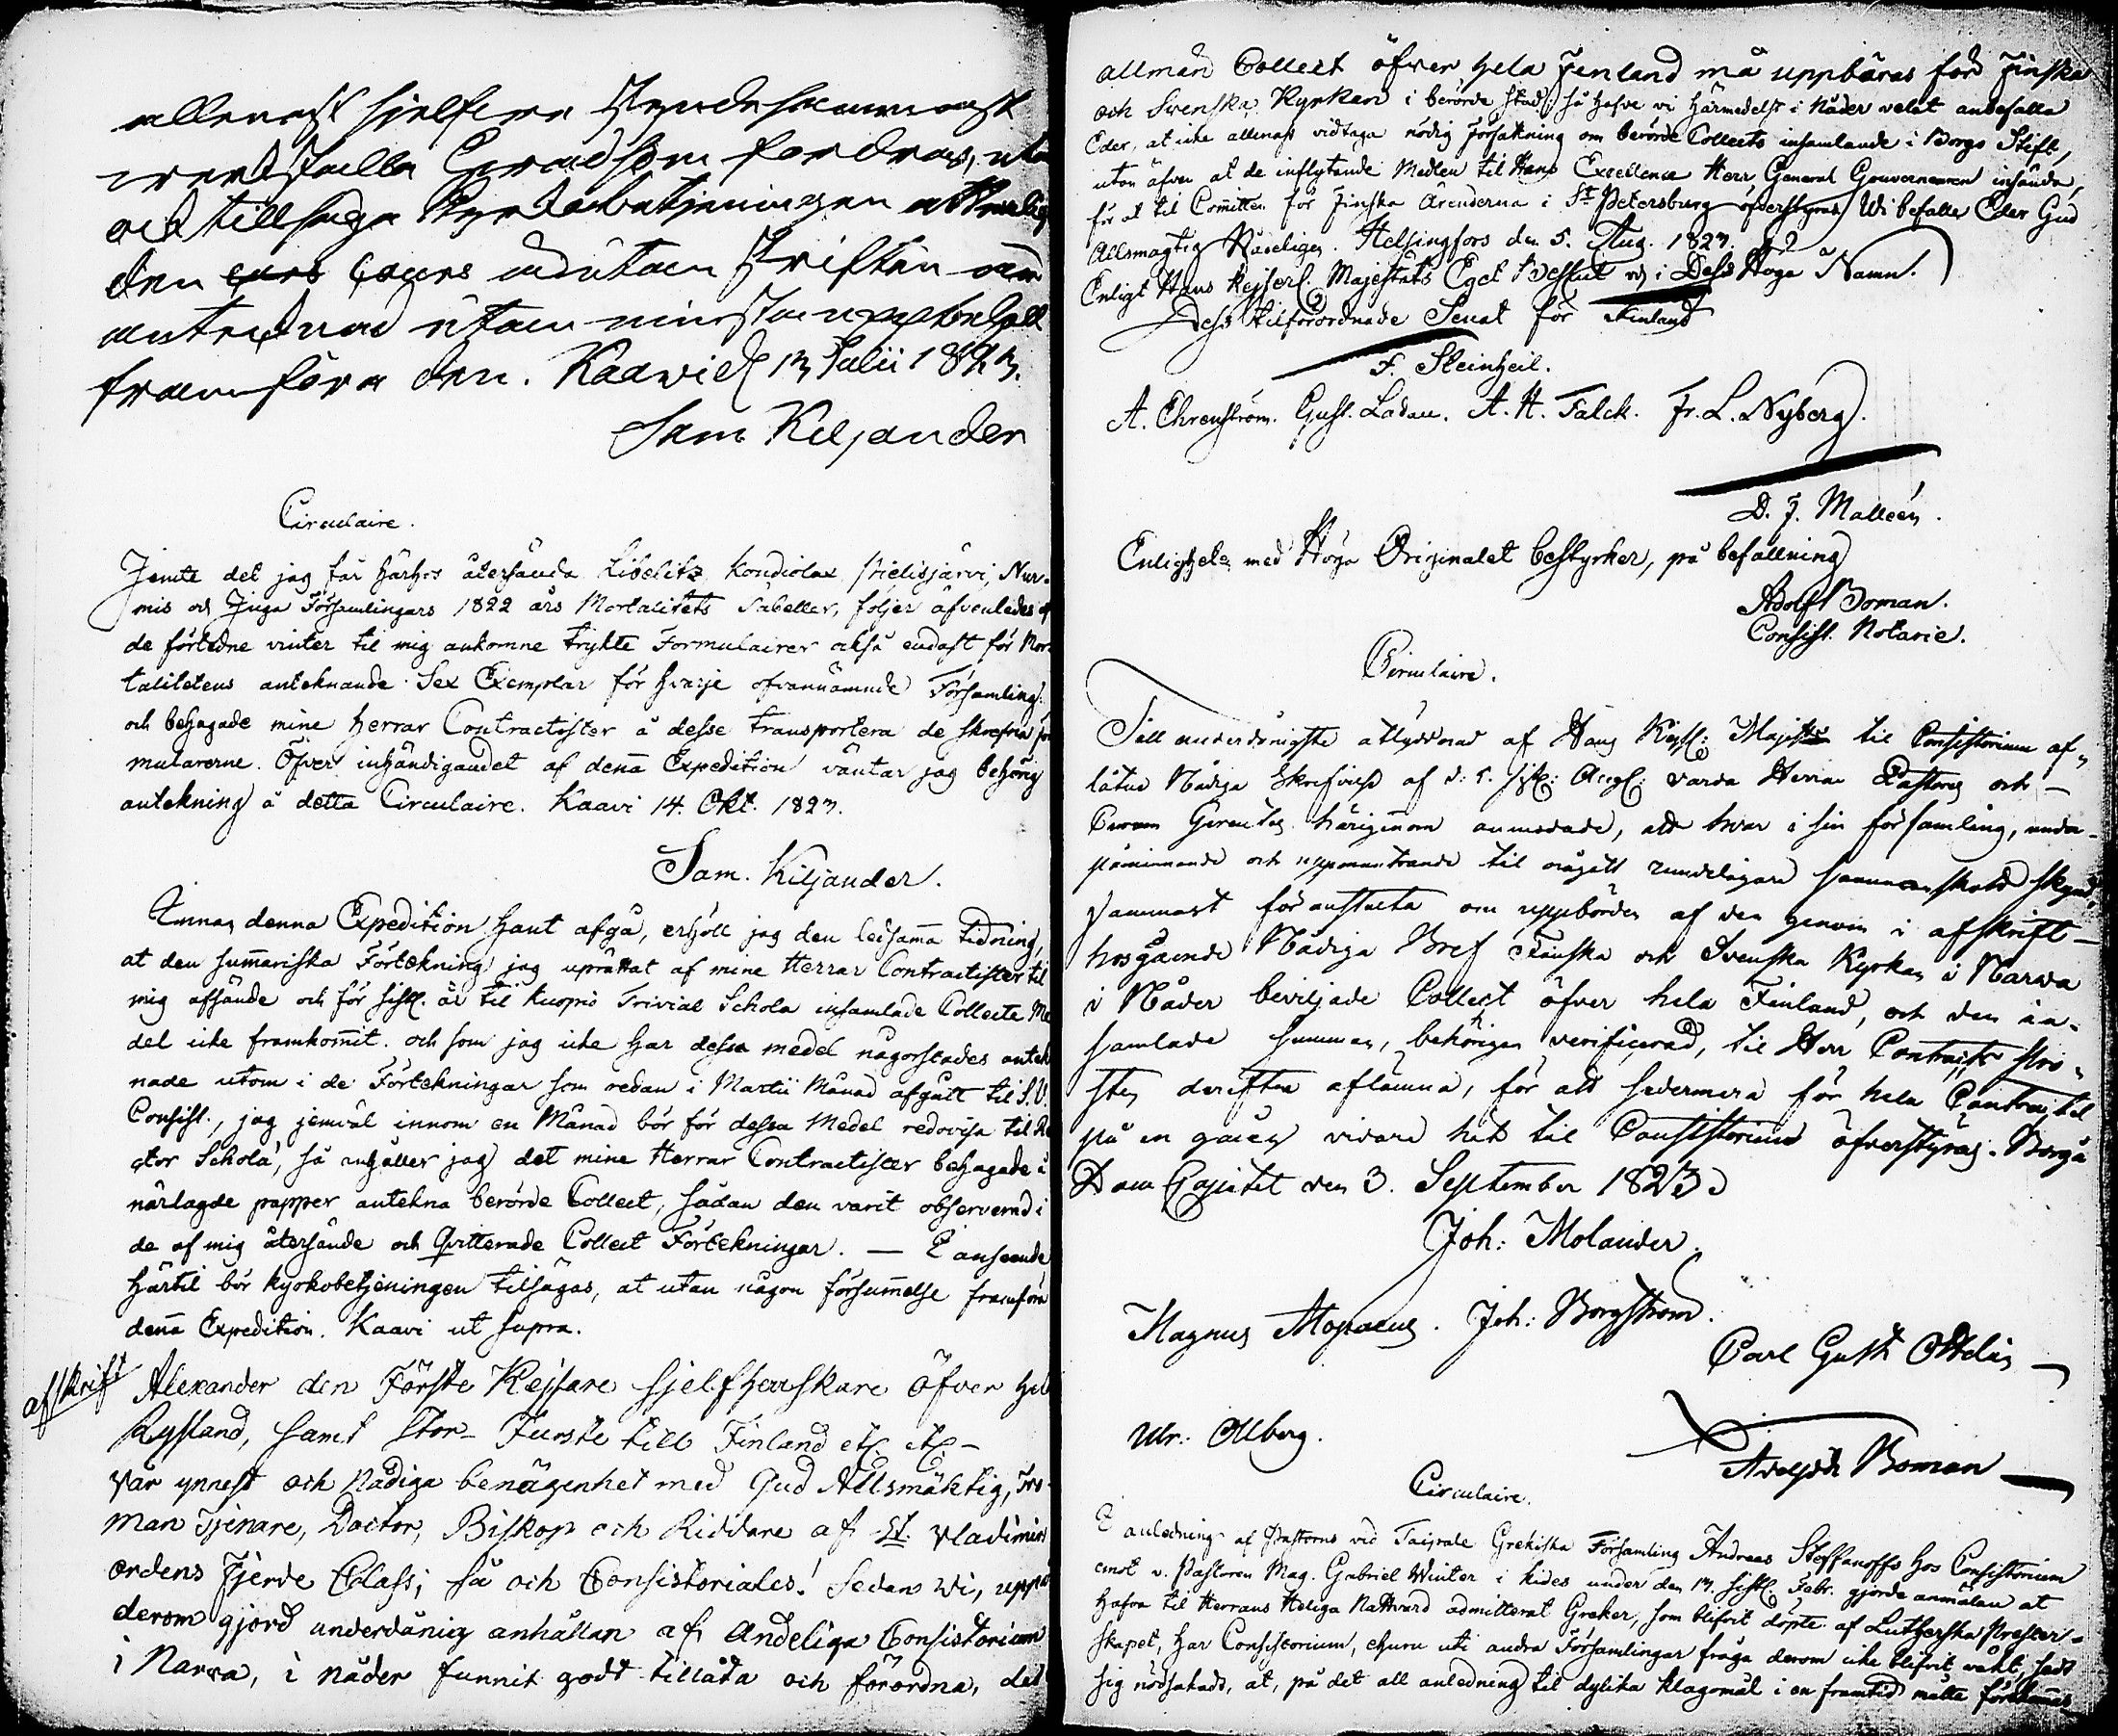 allenast sjelfve skyndesammast
werkställa hvad som fordras, utan
och tillsäga Kyrkobetjeningen att
den curs Cours utstaken
utan minsta uppehåll
framföra den. Kaavi d 13 Julii 1823.
Sam Kiljander
Circulaire.
Jemte det jag får härhos återsända Libelitz, Kondiolax Pielisjärvi, Nur-
mis och Juga Församlingars 1822 års Mortalitets Tabeller, följer äfvenledes af
de förledne vinter til mig ankomne trykte Formulairer också endast för Mor-
talitetens anteknande Sex Exemplar för hvarje ofvannämnde Församling:
och behagade mine Herrar Contractister å desse transportera de skrefna for
mularerne. Öfver inhändigandet af denna Expedition väntar jag behörig
antekning å detta Circulaire. Kaavi 14. Okt. 1823.
Sam. Kiljander.
Innan denna Expedition hant afgå, erhöll jag den ledsamma tidning,
at den summariska Förtekning jag uprättat af mine Herrar Contractister til
mig afsände och för sistl. år til Kuopio Trivial Schola insamlade Collecte Me
del icke framkommit. och som jag icke har dessa medel någorstades antek
nade utom i de Förtekningar som redan i Martii Månad afgått til S.V.
Consist., jag jemväl innom en Månad bör för dessa Medel redovisa til Re
ctor Schola, så anhåller jag det mine Herrar Contractister behagade å
närlagde papper antekna berörde Collect, sådan den varit observerad i
de af mig återsände och Qvitterade Collect Förtekningar. — I anseende
härtil bör kyrkobetjeningen tilsägas, at utan någon försummelse framföra
denna Expedition. Kaavi ut supra.
afskrift
Alexander den Förste Kejsare sjelfherrskare öfver hel
Ryssland, samt Stor-Furste till Finland etc. etc. -
Vår ynnest och Nådiga benägenhet med Gud Allsmäktig, Tro-
man Tjenare, Doctor, Biskop och Riddare af St. Vladimirs
ordens Fjerde Class; så och Consistoriales! Sedan Wi, uppå
derom gjord underdånig anhållan af Andeliga Consistorium
i Narva, i nåder funnit godt tillåta och förordna, det
allmän Collect öfver hela Finland må uppbäras för Finska
och Svenska Kyrkan i berörde Stad; så hafve vi härmedelst i Nåder velat anbefalla
Eder, at icke allenast vidtaga nödig författning om berörde Collects insamlande i Borgo Stift,
utan äfven at de inflytande Medlen til Hans Excellence Herr General Gouverneuren insända,
för at til Comitteen för Finska Ärenderna i St Petersburg öfverstyras. Wi befalle Eder Gud
Allsmagtig Nådeligen. Helsingfors den 5. Aug. 1823.
Enligt Hans Kejserl. Majestäts Eget Beslut och i Dess Höga Namn.
Dess tilförordnade Senat för Finland
F. Steinheil.
A. Ehrenström. Gust. Ladau. A. H. Falck. Fr. L. Nyberg.
D. J. Malleén.
Enligheten med Höga Originalet bestyrker, på befallning
Adolf Boman.
Consist. Notarie.
Circulaire.
Till underdånigste åtlydnad af Hans Kejsl: Majts til Consistorium af-
låtne Nådiga skrifvelse af d: 5. sistl: Aug: varda Herrar Pastores och -
Curam Gerentes härigenom anmodade, att hvar i sin församling, under
påminnande och uppmuntrande til sammanskott skynd-
sammast föranstalta om uppbörden af den genom i afskrift
hosgående Nådiga Bref Finska och Svenska Kyrkan i Narva
i Nåder beviljade Collect öfver hela Finland, och den in-
samlade summan, behörigen verificerad, til Herr Contracts Pro-
sten derefter aflämna, för att sedermera för hela Contractet
på en gång vidare hit til Consistorium öfverstyras. Borgå
Dom Capitel den 3. September 1823.
Joh: Molander.
Magnus Alopaeus. Joh: Borgström.
Carl Gust Ottelin
Ulr: Ollberg.
Adolph Boman
Circulaire.
I anledning af Pastorns vid Taipale Grekiska Församling Andreas Stoffanoffs hos Consistorium
emot v. Pastoren Mag. Gabriel Winter i Kides under den 13. sistl. Febr. gjorde anmälan at
hafva til Herrans Heliga Nattvard admitterat Greker, som blifvit döpte af Lutherska Prester-
skapet, har Consistorium, ehuru uti andra Församlingar fråga derom icke blifvit väkt, sedt
sig nödsakadt, at, på det all anledning til dylika klagomål i en framtid måtte förekommas